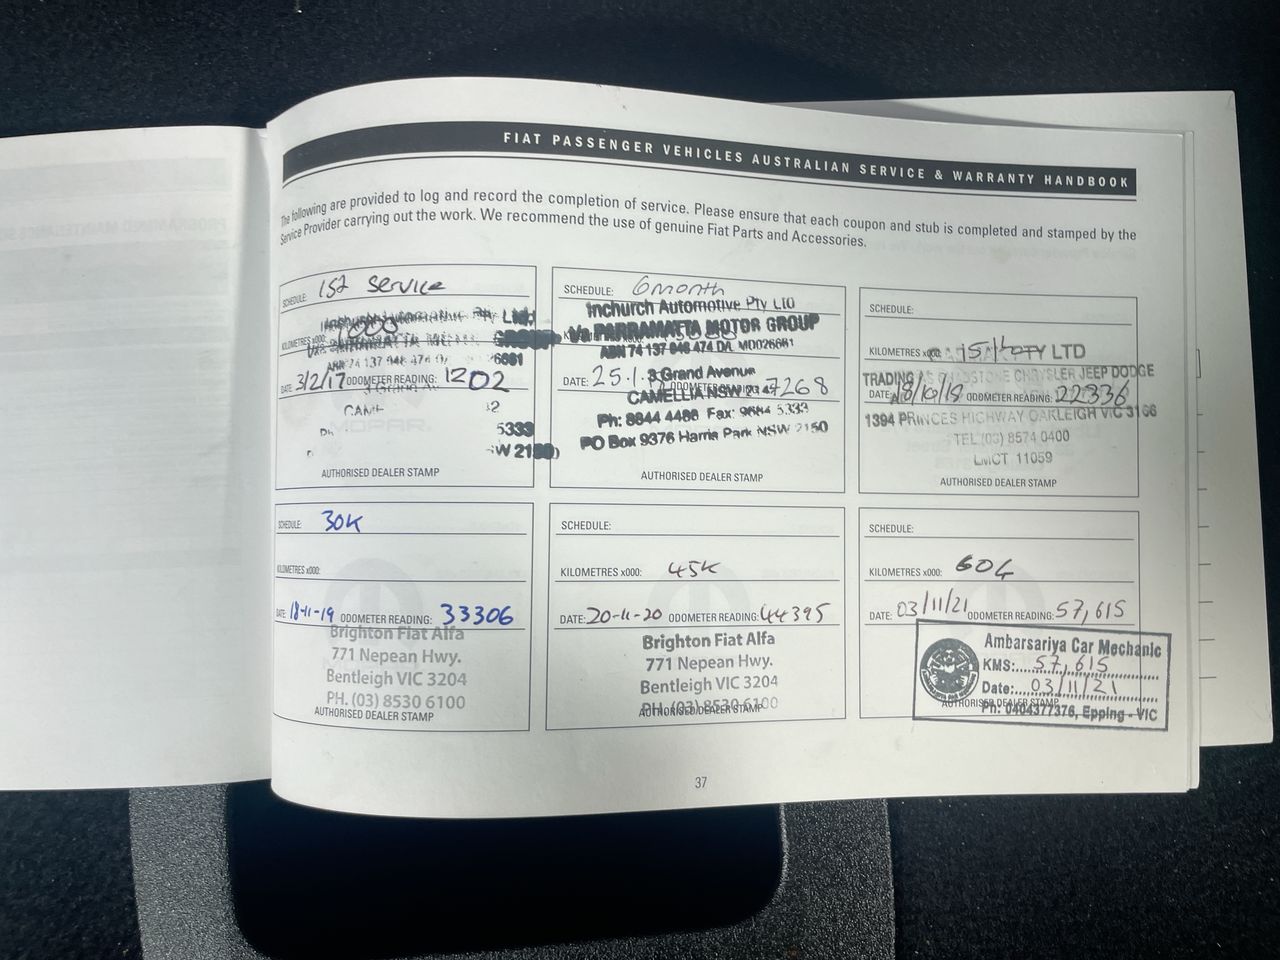 FIAT PASSENGER VEHICLES AUSTRALIAN SERVICE & WARRANTY HANDBOOK
The following are provided to log and record the completion of service. Please ensure that each coupon and stub is completed and stamped by the
Service Provider carrying out the work. We recommend the use of genuine Fiat Parts and Accessories.
SCHEDULE: 1st Service
KILOMETRES x000: 1000
DATE: 3/2/17 ODOMETER READING: 1202
5333
AUTHORISED DEALER STAMP
SCHEDULE: 6 month
Inchurch Automotive Pty Ltd
t/a PARRAMATTA MOTOR GROUP
ABN 74 137 946 474 D/L MD026681
DATE: 25.1. 3 Grand Avenue
ODOMETER READING: 7268
CAMELLIA NSW 2142
Ph: 8844 4488 Fax: 9684 5333
PO Box 9376 Harris Park NSW 2150
AUTHORISED DEALER STAMP
SCHEDULE:
KILOMETRES x000: 15K PTY LTD
TRADING AS CHRYSLER JEEP DODGE
DATE: 18/10/18 ODOMETER READING: 22336
1394 PRINCES HIGHWAY OAKLEIGH VIC 3166
TEL (03) 8574 0400
LMCT 11059
AUTHORISED DEALER STAMP
SCHEDULE: 30K
KILOMETRES x000:
DATE: 18-11-19 ODOMETER READING: 33306
Brighton Fiat Alfa
771 Nepean Hwy.
Bentleigh VIC 3204
PH. (03) 8530 6100
AUTHORISED DEALER STAMP
SCHEDULE:
KILOMETRES x000: 45K
DATE: 20-11-20 ODOMETER READING: 44395
Brighton Fiat Alfa
771 Nepean Hwy.
Bentleigh VIC 3204
PH. (03) 8530 6100
AUTHORISED DEALER STAMP
SCHEDULE:
KILOMETRES x000: 60K
DATE: 03/11/21 ODOMETER READING: 57,615
Ambarsariya Car Mechanic
KMS: 57,615
Date: 03/11/21
AUTHORISED DEALER STAMP
Ph: 0404377376, Epping - VIC
37